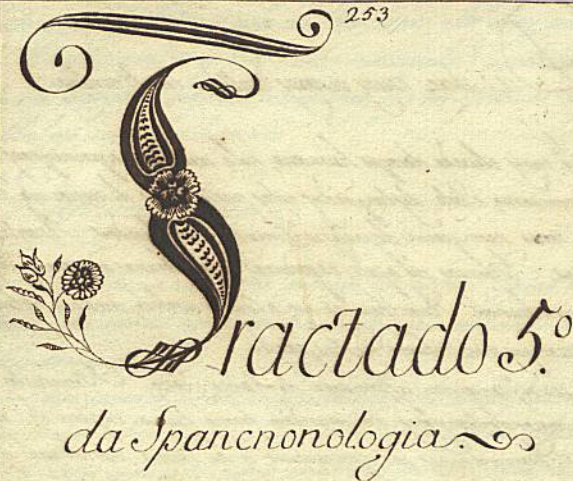 253
Tractado 5.º
da Spancnonologia